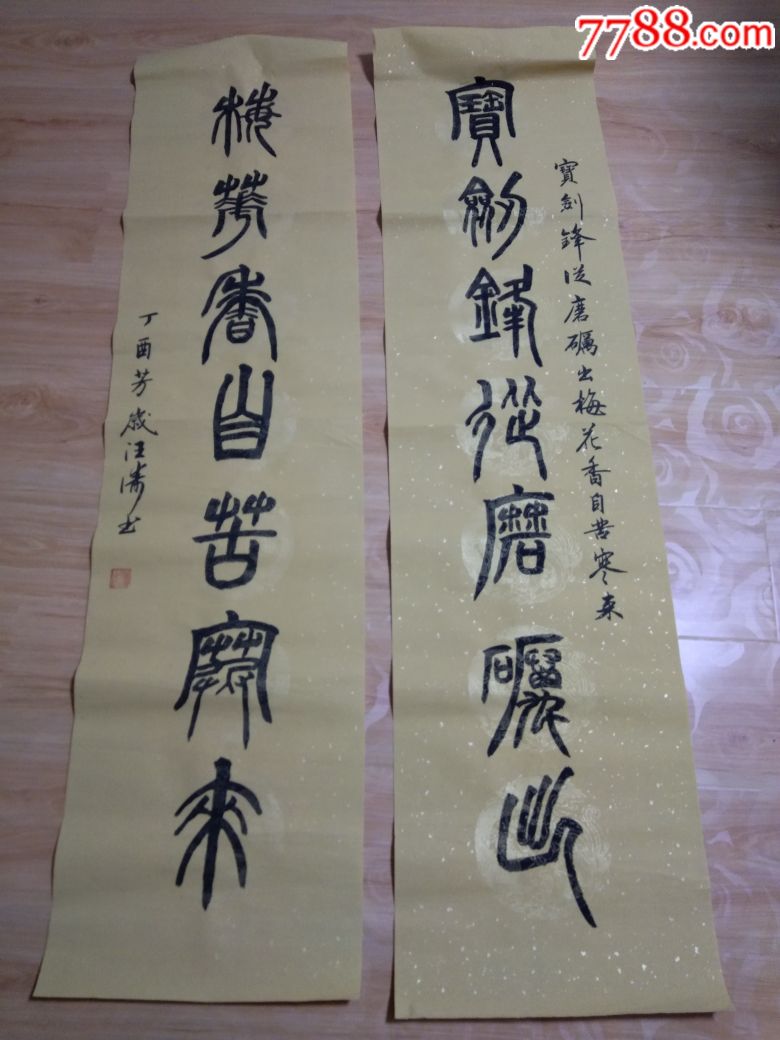 7788.com
寶劍鋒從磨礪出
寶劍鋒從磨礪出梅花香自苦寒來
梅華香自苦寒來
丁酉芳歲汪濤書